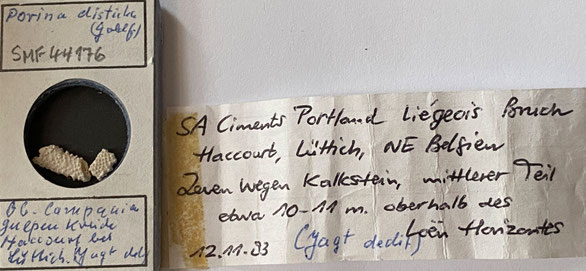 Porina disticha
(Goldf.)
SMF 44176
Ob. Campania
Gulpen Kreide
Haccourt bei
Lüttich. Jagt ded.
SA Ciments Portland Liégeois Bruch
Haccourt, Lüttich, NE Belgien
Zeven Wegen Kalkstein, mittlerer Teil
etwa 10-11 m. oberhalb des
Loën Horizontes
12.11.83 (Jagt dedit)